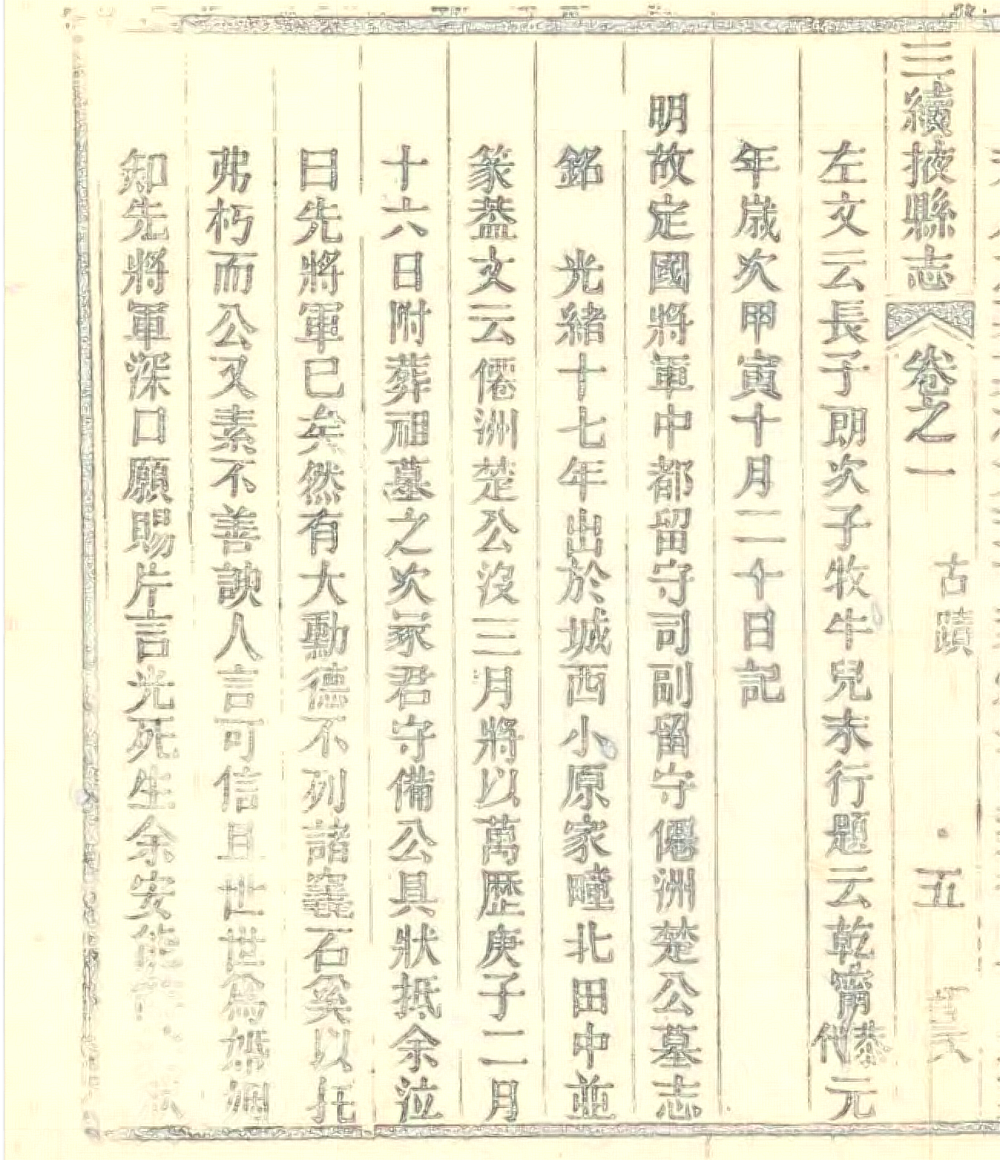 三續掖縣志 卷之一 古蹟 五
左文云長子朗次子牧牛兒末行題云乾寧泰代元
年歲次甲寅十月二十日記
明故定國將軍中都留守司副留守僊洲楚公墓志
銘 光緒十七年出於城西小原家疃北田中並
篆葢文云僊洲楚公沒三月將以萬歷庚子二月
十六日附葬祖墓之次冢君守備公具狀抵余泣
曰先將軍已矣然有大勳德不列諸窆石奚以托
弗朽而公又素不善諛人言可信且世世爲婚姻
知先將軍深口願賜片言光死生余安能